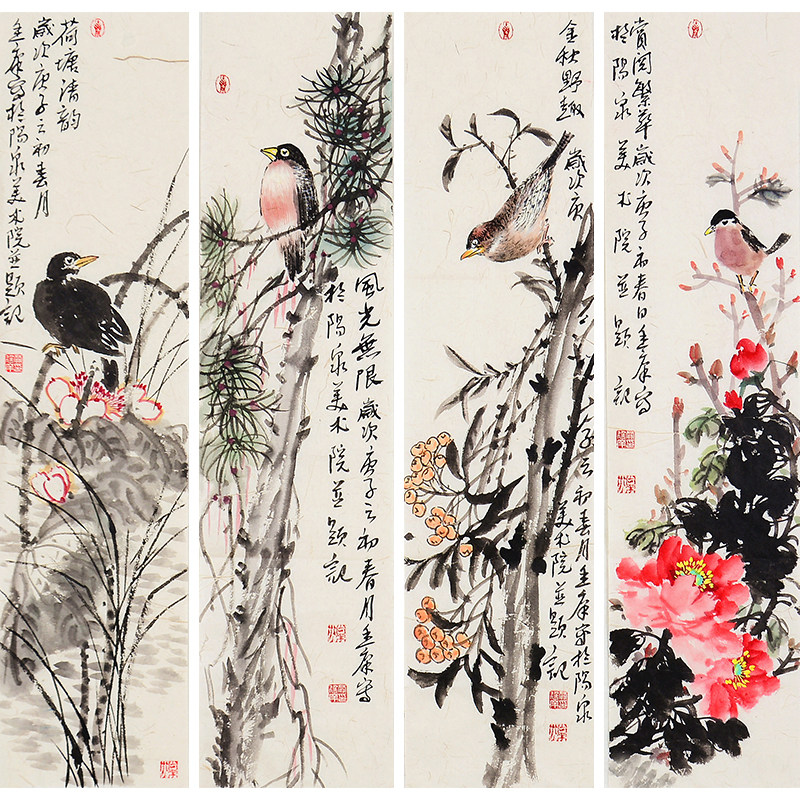 荷塘清韵
歲次庚子之初春月
写於陽泉美术院並題記
風光無限 歲次庚子之初春月
於陽泉美术院並題記
金秋野趣 歲次庚
子之初春月 写於陽泉
美术院並題記
繁華歲次庚子 春日 写
於陽泉 美术院並題記